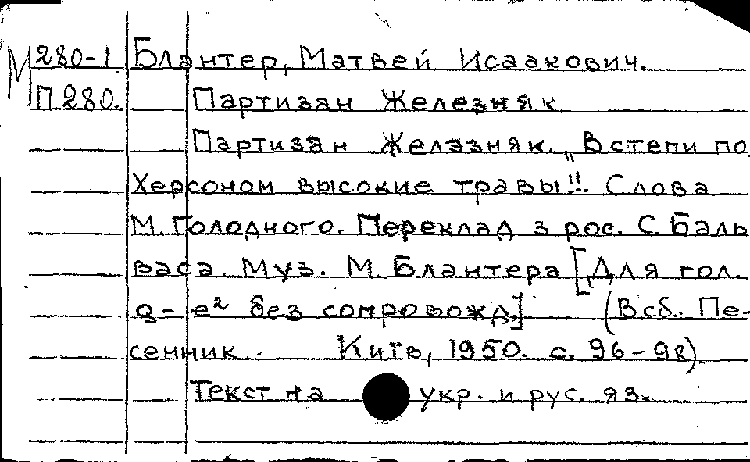 М 280-1 Блантер, Матвей Исаакович.
П 280. Партизан Железняк
Партизан Желазняк. „В степи по
Херсоном высокие травы". Слова
М. Голодного. Переклад з рос. С. Баль
васа. Муз. М. Блантера [Для гол.
g-e² без сопровожд.] (В сб. Пе-
сенник. Київ, 1950. с. 96-98)
Текст на укр. и рус. яз.